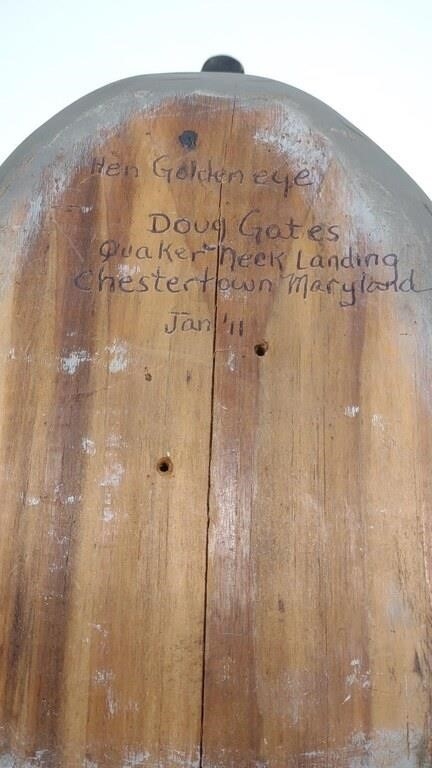 Hen Goldeneye
Doug Gates
Quaker Neck Landing
Chestertown Maryland
Jan '11